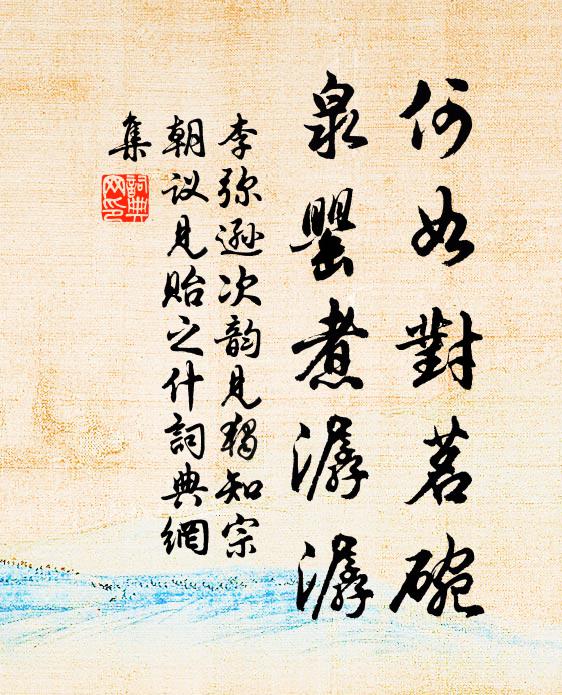 何如對茗碗
泉罌煮潺潺
李弥遜次韵見獨知宗
朝议見贻之什詞典網
集
詞典
网印